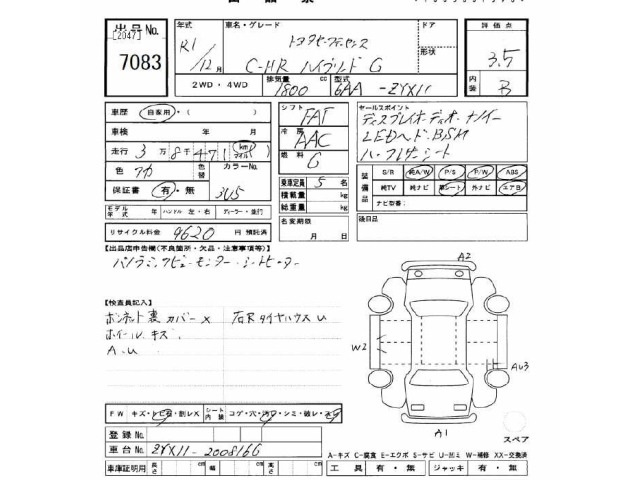 出品No. 年式 車名・グレード ドア 評価点
[2047] R1 トヨタセーフティセンス 形状
7083 12月 C-HR ハイブリッド G 3.5
2WD・4WD 排気量 1800 cc 型式 6AA-ZYX11 内装 B
車歴 自家用・( ) シフト FAT セールスポイント
車検 年 月 冷房 AAC ディスプレイオーディオ・ナノイー
走行 3万8千471 km マイル 燃料 G LEDヘッド・BSM
色 アカ 色替 カラーNo. 3U5 ハーフレザーシート
保証書 有・無 乗車定員 5名 装備品 S/R 純A/W P/S P/W ABS
積載量 kg 純TV 純ナビ 革シート 外ナビ エアB
モデル年式 年 ハンドル 左・右 ディーラー・並行 総重量 kg ナビ型番( )
リサイクル料金 9620 円 預託済 名変期限 月 日 後日品
【出品店申告欄(不良箇所・欠品・注意事項等)】
パノラミックビューモニター・シートヒーター
A2
【検査員記入】
ボンネット裏カバーX 右Rタイヤハウスu
ホイールキズ
A.u
W2
AU3
FW キズ・トビ石・割レX シート内装 コゲ・穴・汚レ・シミ・破レ・スレ
A1
スペア
登録No.
車台No. ZYX11-2008166
A-キズ C-腐食 E-エクボ S-サビ U-凹ミ W-補修 XX-交換済
車庫証明用 長さ cm 幅 cm 高さ cm 工具 有・無 ジャッキ 有・無